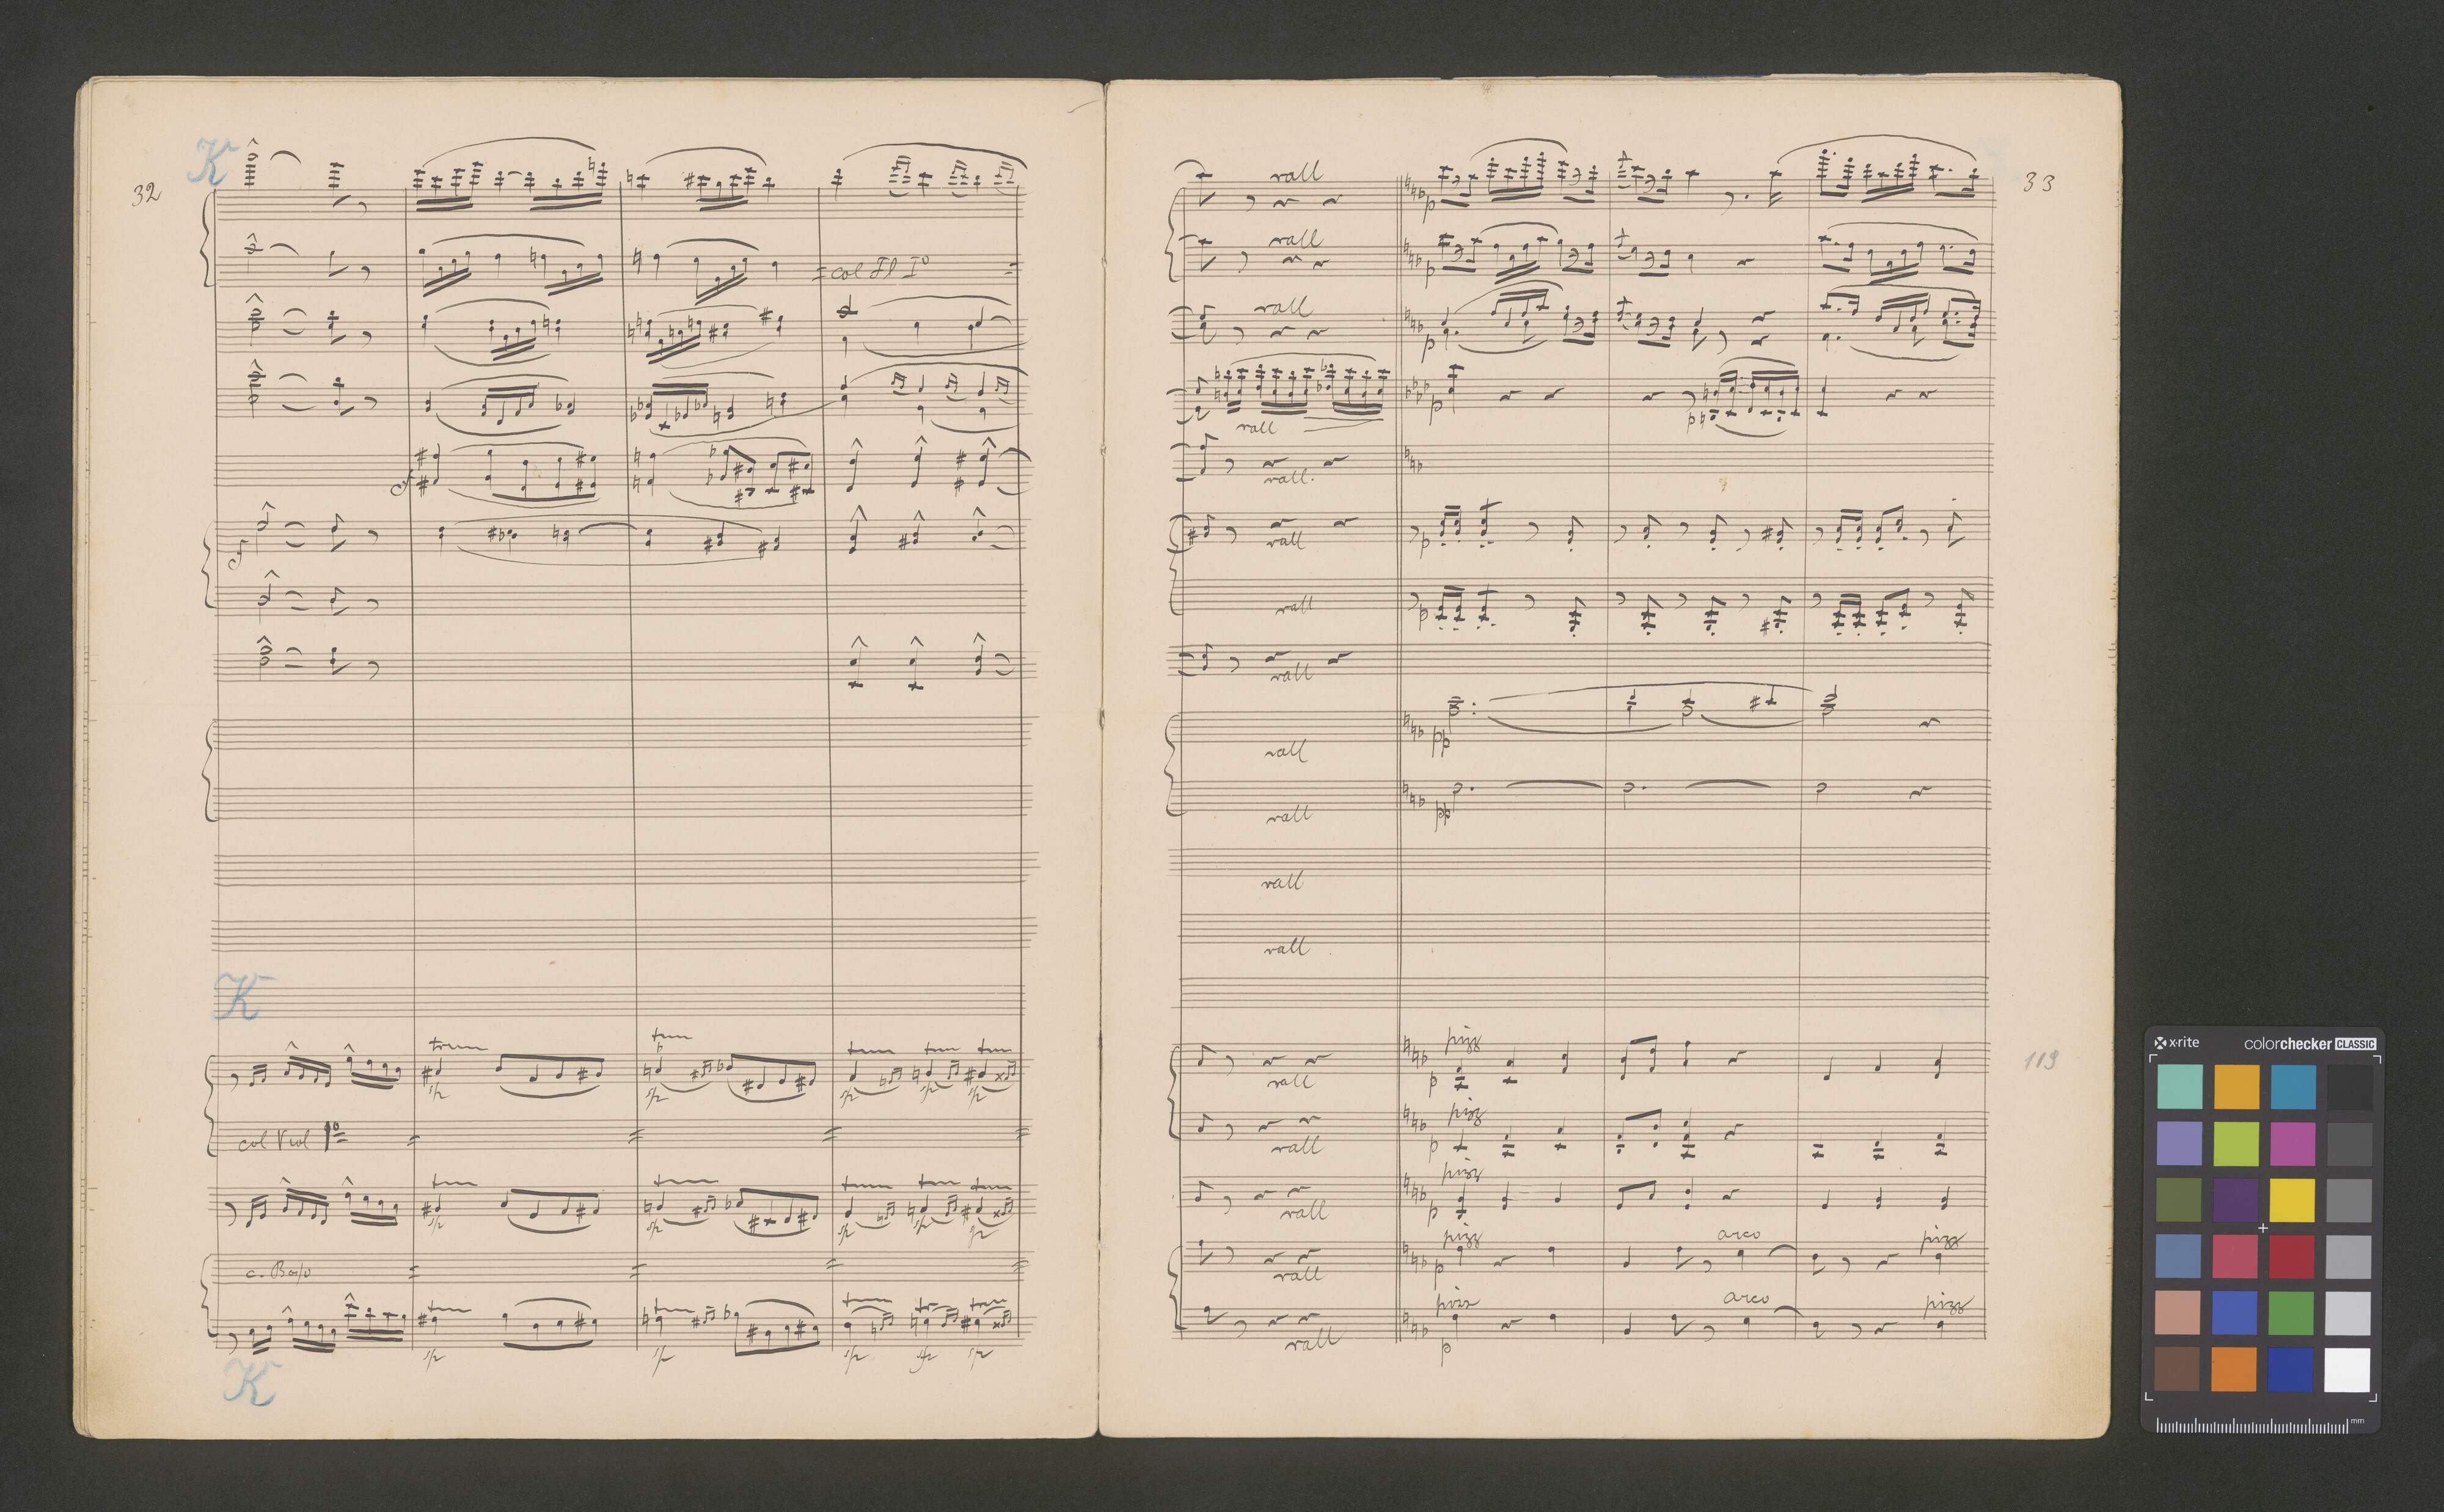 32
K
col Fl Iº
K
col Viol 1º
c. Bajo
K
33
rall
rall
rall
p
p
p
p
rall
p
rall.
rall
p
rall
p
rall
rall
pp
rall
pp
rall
rall
pizz
rall
p
119
pizz
rall
p
pizz
rall
p
pizz
arco
pizz
rall
p
pizz
arco
pizz
rall
p
x-rite
colorchecker CLASSIC
mm